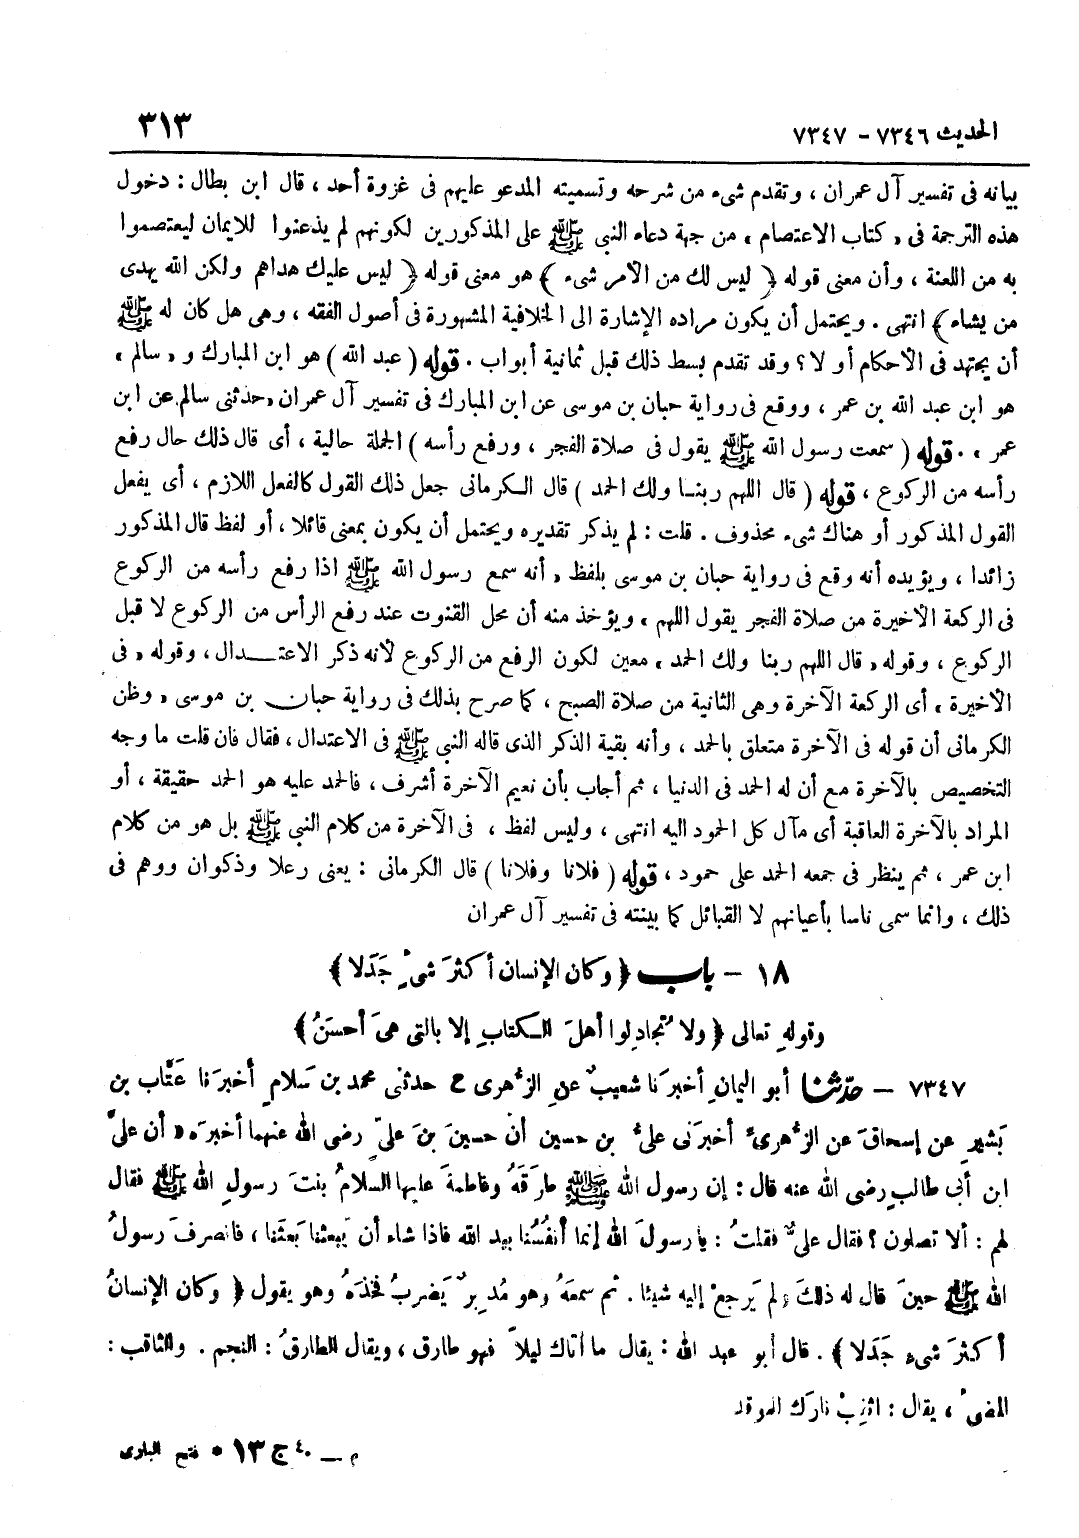 الحديث ٧٣٤٦ - ٧٣٤٧
٣١٣
بيانه فى تفسير آل عمران ، وتقدم شىء من شرحه وتسميته المدعو عليهم فى غزوة أحد ، قال ابن بطال : دخول
هذه الترجمة فى « كتاب الاعتصام » من جهة دعاء النبي ﷺ على المذكورين لكونهم لم يذعنوا للايمان ليعتصموا
به من اللعنة ، وأن معنى قوله ﴿ ليس لك من الأمر شىء ﴾ هو معنى قوله ﴿ ليس عليك هداهم ولكن الله يهدى
من يشاء ﴾ انتهى . ويحتمل أن يكون مراده الإشارة الى الخلافية المشهورة فى أصول الفقه ، وهى هل كان له ﷺ
أن يجتهد فى الأحكام أو لا ؟ وقد تقدم بسط ذلك قبل ثمانية أبواب . قوله ( عبد الله ) هو ابن المبارك و « سالم »
هو ابن عبد الله بن عمر ، ووقع فى رواية حبان بن موسى عن ابن المبارك فى تفسير آل عمران « حدثنى سالم عن ابن
عمر » . قوله ( سمعت رسول الله ﷺ يقول فى صلاة الفجر ، ورفع رأسه ) الجملة حالية ، أى قال ذلك حال رفع
رأسه من الركوع ، قوله ( قال اللهم ربنـا ولك الحمد ) قال الـكرمانى جعل ذلك القول كالفعل اللازم ، أى يفعل
القول المذكور أو هناك شىء محذوف . قلت : لم يذكر تقديره ويحتمل أن يكون بمعنى قائلا ، أو لفظ قال المذكور
زائدا ، ويؤيده أنه وقع فى رواية حبان بن موسى بلفظ « أنه سمع رسول الله ﷺ اذا رفع رأسه من الركوع
فى الركعة الأخيرة من صلاة الفجر يقول اللهم » ويؤخذ منه أن محل القنوت عند رفع الرأس من الركوع لا قبل
الركوع ، وقوله « قال اللهم ربنا ولك الحمد » معين لكون الرفع من الركوع لأنه ذكر الاعتـدال ، وقوله « فى
الأخيرة » أى الركعة الآخرة وهى الثانية من صلاة الصبح ، كما صرح بذلك فى رواية حبان بن موسى « وظن
الكرمانى أن قوله فى الآخرة متعلق بالحمد ، وأنه بقية الذكر الذى قاله النبي ﷺ فى الاعتدال ، فقال فان قلت ما وجه
التخصيص بالآخرة مع أن له الحمد فى الدنيا ، ثم أجاب بأن نعيم الآخرة أشرف ، فالحمد عليه هو الحمد حقيقة ، أو
المراد بالآخرة العاقبة أى مآل كل الحمود اليه انتهى ، وليس لفظ ، فى الآخرة من كلام النبي ﷺ بل هو من كلام
ابن عمر ، ثم ينظر فى جمعه الحمد على حمود ، قوله ( فلانا وفلانا ) قال الكرمانى : يعنى رعلا وذكوان ووهم فى
ذلك ، وانما سمى ناسا بأعيانهم لا القبائل كما بينته فى تفسير آل عمران
١٨ - باب ﴿ وكان الإنسان أكثرَ شىءٍ جَدَلا ﴾
وقولهِ تعالى ﴿ ولا تُجادِلوا أهلَ الـكتابِ إلا بالتى هىَ أحسَنُ ﴾
٧٣٤٧ - حدّثنا أبو اليمانِ أخبرَنا شعيبٌ عنِ الزُّهرى ح حدثنى محمد بن سَلامٍ أخبرَنا عَتَّاب بن
بَشيرٍ عن إسحاقَ عن الزُّهرىِّ أخبرَنى علىُّ بن حسين أن حسينَ بنَ علىّ رضى الله عنهما أخبرَه « أن علىَّ
ابن أبى طالبٍ رضى الله عنه قال : إن رسول الله ﷺ طرَقَهُ وفاطمةَ عليها السلامُ بنتَ رسولِ الله ﷺ فقال
لهم : ألا تصلون ؟ فقال علىٌّ فقلتُ : يا رسولَ الله إنما أنفُسُنا بيد الله فاذا شاء أن يَبعثَنا بَعثَنا ، فانصرفَ رسولُ
الله ﷺ حينَ قال له ذلكَ ولم يَرجعْ إليه شيئا . ثم سمعَهُ وهو مُدبِرٌ يَضربُ فخذَهُ وهو يقول ﴿ وكان الإنسانُ
أكثرَ شىءٍ جَدَلا ﴾ . قال أبو عبد الله : يقال ما أتاك ليلاً فهو طارق ، ويقال الطارقُ : النجم . والثاقب :
المضىُ ، يقال : اثقِبْ نارَك للموقد
م ــ ٤٠ ج ١٣ * فتح البارى